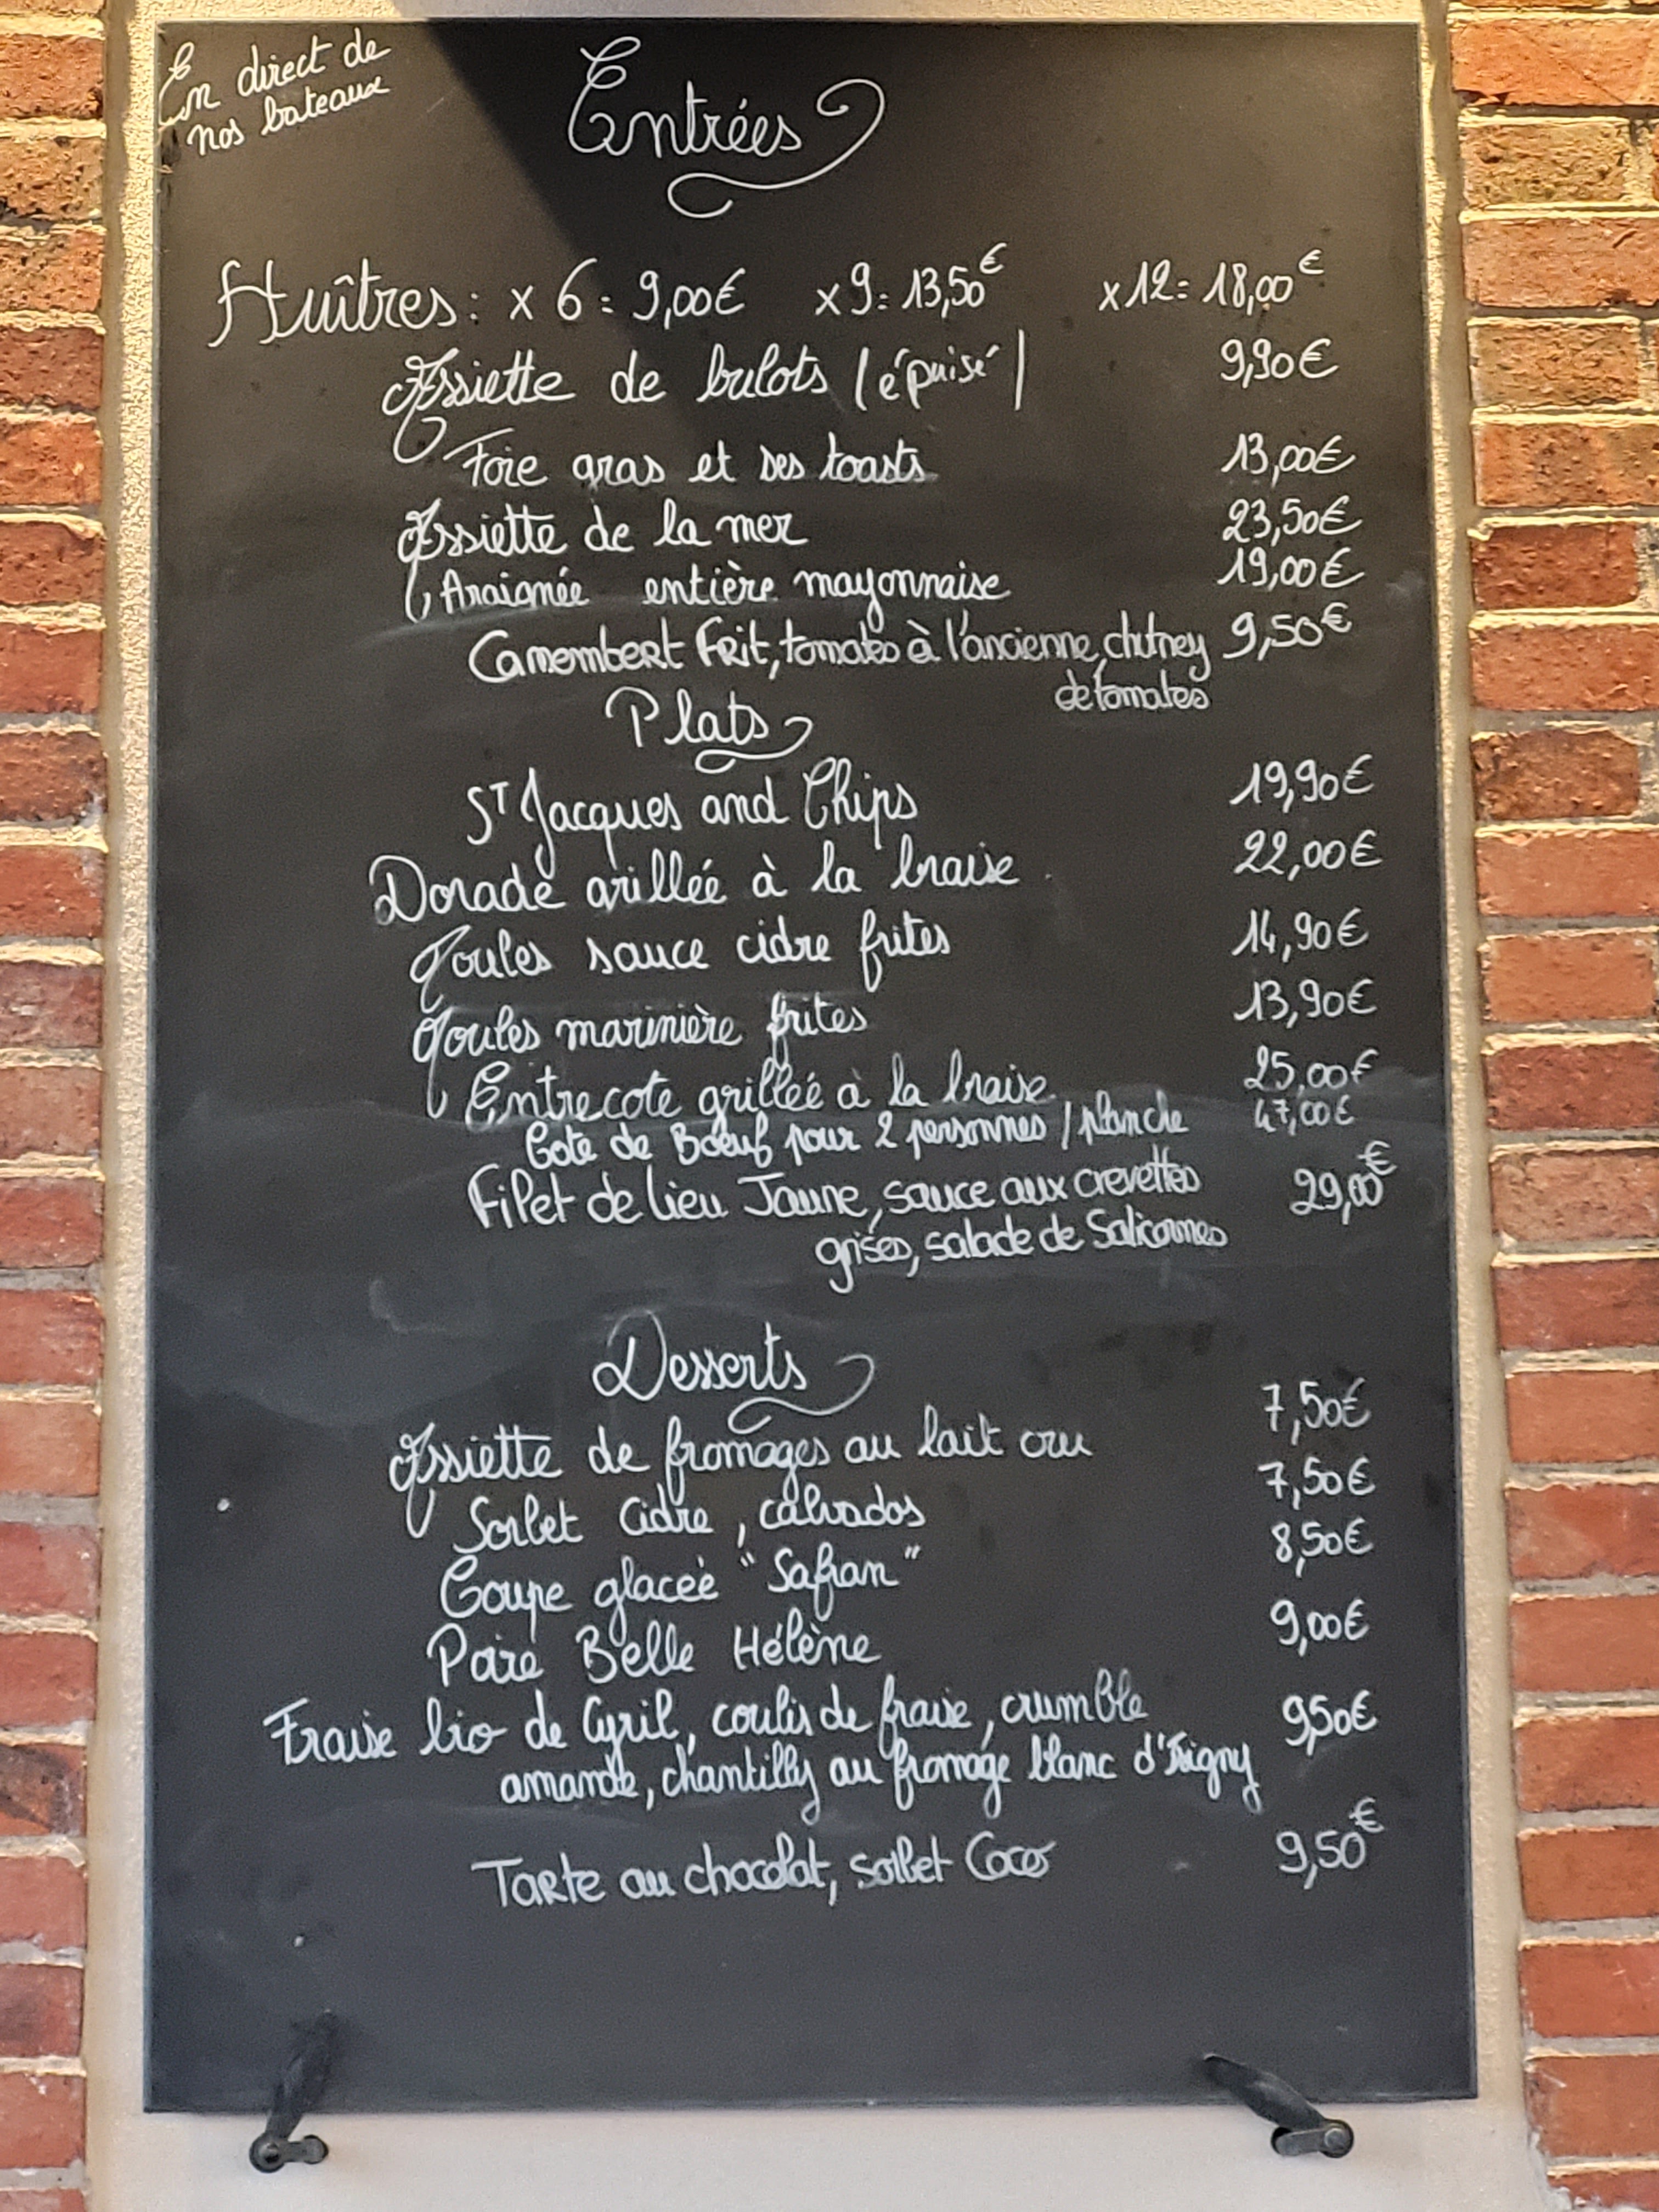 En direct de
nos bateaux
Entrées
Huîtres : x 6 = 9,00€ x 9 = 13,50€ x 12 = 18,00€
Assiette de bulots (épuisé) 9,90€
Foie gras et ses toasts 13,00€
Assiette de la mer 23,50€
Araignée entière mayonnaise 19,00€
Camembert Frit, tomates à l'ancienne, chutney 9,50€
de tomates
Plats
ST Jacques and Chips 19,90€
Dorade grillée à la braise 22,00€
Moules sauce cidre frites 14,90€
Moules marinière frites 13,90€
Entrecote grillée à la braise 25,00€
Cote de Bœuf pour 2 personnes / planche 47,00€
Filet de lieu Jaune, sauce aux crevettes 29,00€
grises, salade de Salicornes
Desserts
Assiette de fromages au lait cru 7,50€
Sorbet Cidre, calvados 7,50€
Coupe glacée "Safran" 8,50€
Poire Belle Hélène 9,00€
Fraise bio de Cyril, coulis de fraise, crumble 9,50€
amande, chantilly au fromage blanc d'Isigny
Tarte au chocolat, sorbet Coco 9,50€